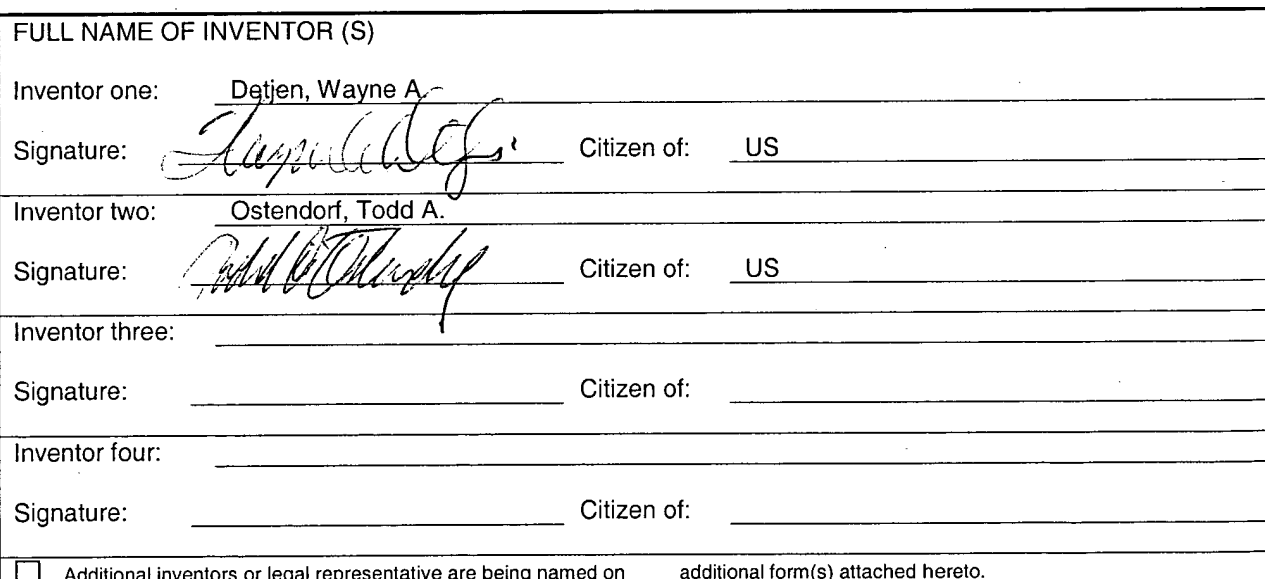 FULL NAME OF INVENTOR (S)
Inventor one: Detjen, Wayne A.
Signature: Wayne A Detjen Citizen of: US
Inventor two: Ostendorf, Todd A.
Signature: Todd A Ostendorf Citizen of: US
Inventor three:
Signature: Citizen of:
Inventor four:
Signature: Citizen of:
Additional inventors or legal representative are being named on additional form(s) attached hereto.